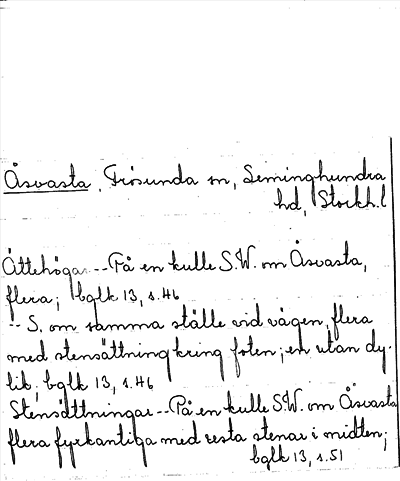 Åsvasta, Frösunda sn, Seminghundra
hd, Stockh.l
Ättehögar -- På en kulle S.W. om Åsvasta,
flera; bglk 13, s. 46
-- S. om samma ställe vid vägen, flera
med stensättning kring foten; en utan dy-
lik; bglk 13, s. 46
Stensättningar -- På en kulle S.W. om Åsvasta
flera fyrkantiga med resta stenar i midten;
bglk 13, s. 51